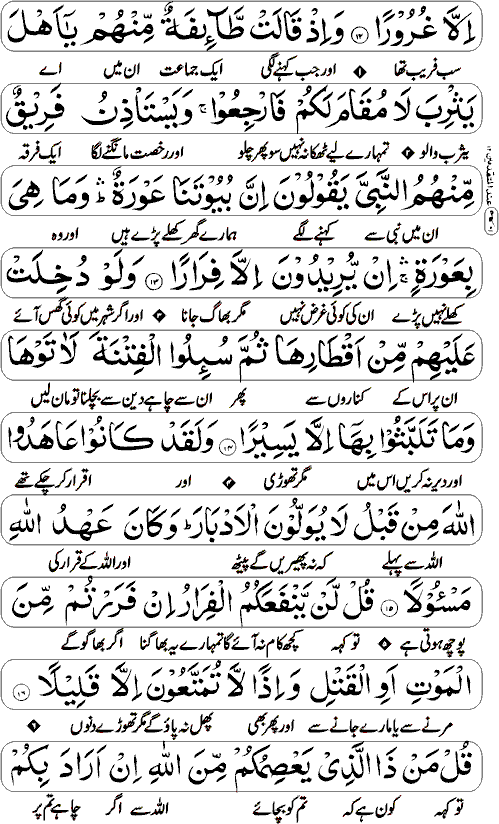 اِلَّا غُرُوْرًا ۝۱۲ وَاِذْ قَالَتْ طَّآئِفَةٌ مِّنْهُمْ يٰٓاَهْلَ
سب فریب تھا ۱ اور جب کہنے لگی ایک جماعت ان میں اے
يَثْرِبَ لَا مُقَامَ لَكُمْ فَارْجِعُوْا ۚ وَيَسْتَاْذِنُ فَرِيْقٌ
یثرب والو ۲ تمہارے لیے ٹھکانہ نہیں سو پھر چلو اور رخصت مانگنے لگا ایک فرقہ
مِّنْهُمُ النَّبِيَّ يَقُوْلُوْنَ اِنَّ بُيُوْتَنَا عَوْرَةٌ ۛ وَمَا هِيَ
ان میں نبی سے کہنے لگے ہمارے گھر کھلے پڑے ہیں اور وہ
بِعَوْرَةٍ ۛ اِنْ يُّرِيْدُوْنَ اِلَّا فِرَارًا ۝۱۳ وَلَوْ دُخِلَتْ
کھلے نہیں پڑے ان کی کوئی غرض نہیں مگر بھاگ جانا ۶ اور اگر شہر میں کوئی گھس آئے
عَلَيْهِمْ مِّنْ اَقْطَارِهَا ثُمَّ سُىِٕلُوا الْفِتْنَةَ لَاٰتَوْهَا
ان پر اس کے کناروں سے پھر ان سے چاہے دین سے بچلنا تو مان لیں
وَمَا تَلَبَّثُوْا بِهَآ اِلَّا يَسِيْرًا ۝۱۴ وَلَقَدْ كَانُوْا عَاهَدُوا
اور دیر نہ کریں اس میں مگر تھوڑی ۷ اور اقرار کر چکے تھے
اللّٰهَ مِنْ قَبْلُ لَا يُوَلُّوْنَ الْاَدْبَارَ ؕ وَكَانَ عَهْدُ اللّٰهِ
اللہ سے پہلے کہ نہ پھیریں گے پیٹھ اور اللہ کے قرار کی
مَسْـُٔوْلًا ۝۱۵ قُلْ لَّنْ يَّنْفَعَكُمُ الْفِرَارُ اِنْ فَرَرْتُمْ مِّنَ
پوچھ ہوتی ہے ۸ تو کہہ کچھ کام نہ آئے گا تمہارے یہ بھاگنا اگر بھاگو گے
الْمَوْتِ اَوِ الْقَتْلِ وَاِذًا لَّا تُمَتَّعُوْنَ اِلَّا قَلِيْلًا ۝۱۶
مرنے سے یا مارے جانے سے اور پھر بھی پھل نہ پاؤ گے مگر تھوڑے دنوں ۹
قُلْ مَنْ ذَا الَّذِيْ يَعْصِمُكُمْ مِّنَ اللّٰهِ اِنْ اَرَادَ بِكُمْ
تو کہہ کون ہے کہ تم کو بچائے اللہ سے اگر چاہے تم پر